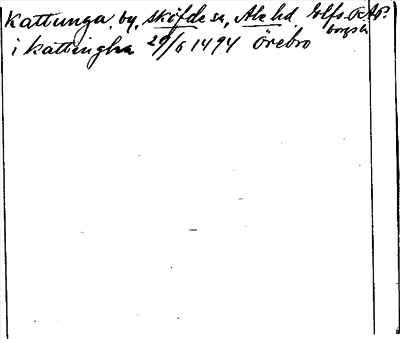 Kattunga, by, Sköfde sn, Ale hd. Elfs-
borgs l.
i Kattungha 29/6 1494 Örebro